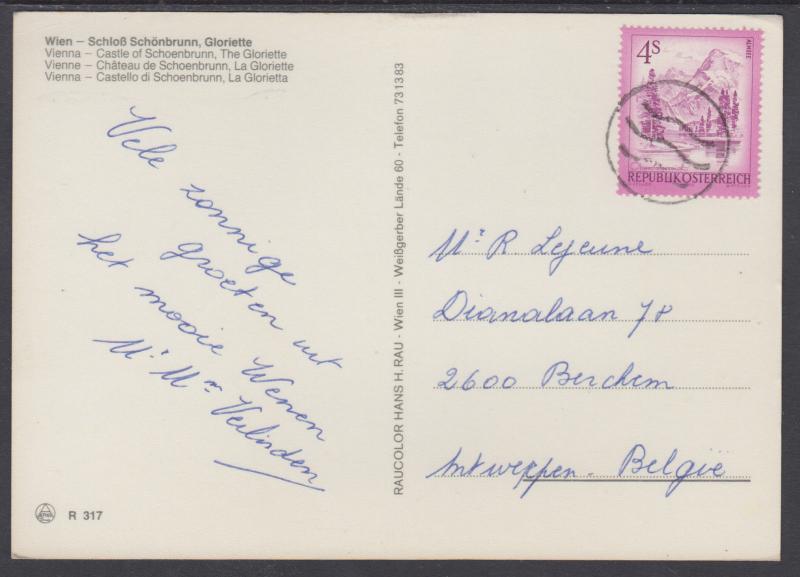 Wien – Schloß Schönbrunn, Gloriette
Vienna – Castle of Schoenbrunn, The Gloriette
Vienne – Château de Schoenbrunn, La Gloriette
Vienna – Castello di Schoenbrunn, La Glorietta
Vele zonnige
groeten uit
het mooie Wenen
Mr Mm Verlinden
R 317
RAUCOLOR HANS H. RAU · Wien III · Weißgerber Lände 60 · Telefon 731383
4S
ALMSEE
REPUBLIK ÖSTERREICH
Mr R Lejeune
Dianalaan 78
2600 Berchem
Antwerpen - België